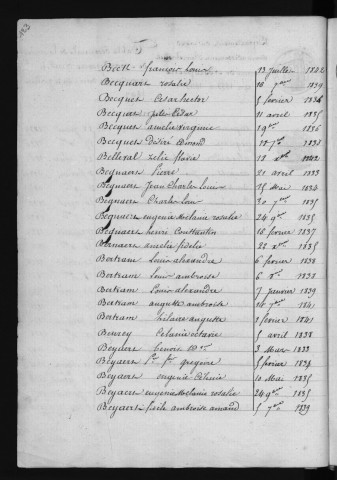 Becth françois Louis 13 juillet 1842
Becquart rosalie 10 7bre 1839
Becques César hector 5 fevrier 1834
Becques jules César 11 avril 1835
Becques amelie virginie 19 1836
Becques Desiré Edmond 18 7bre
Belleval Zelie flavie 18 xbre 1842
Begnaers Pierre 21 avril 1833
Begnaers Jean Charles Louis 25 Mai 1834
Begnaers Charles Louis 20 7bre 1835
Begnaers eugenia Melanie rosalie 24 9bre 1835
Begnaers henri Constantin 16 fevrier 1837
Bernaers amelie fidelia 22 xbre 1835
Bertram Louis alexandre 6 fevrier 1838
Bertram Louis ambroise 6 1838
Bertram Louis alexandre 7 janvier 1839
Bertram auguste ambroise 7bre 1841
Bertram hilaire auguste 2 fevrier 1841
Beurey Celania octavie 5 avril 1838
Beyaert benoit 3 Mars 1833
Beyaers gregoire 5 fevrier 1834
Beyaers eugenia Celenie 10 Mai 1835
Beyaers eugenia Melanie rosalie 24 9bre 1835
Beyaers ambroise amand 5 7bre 1839